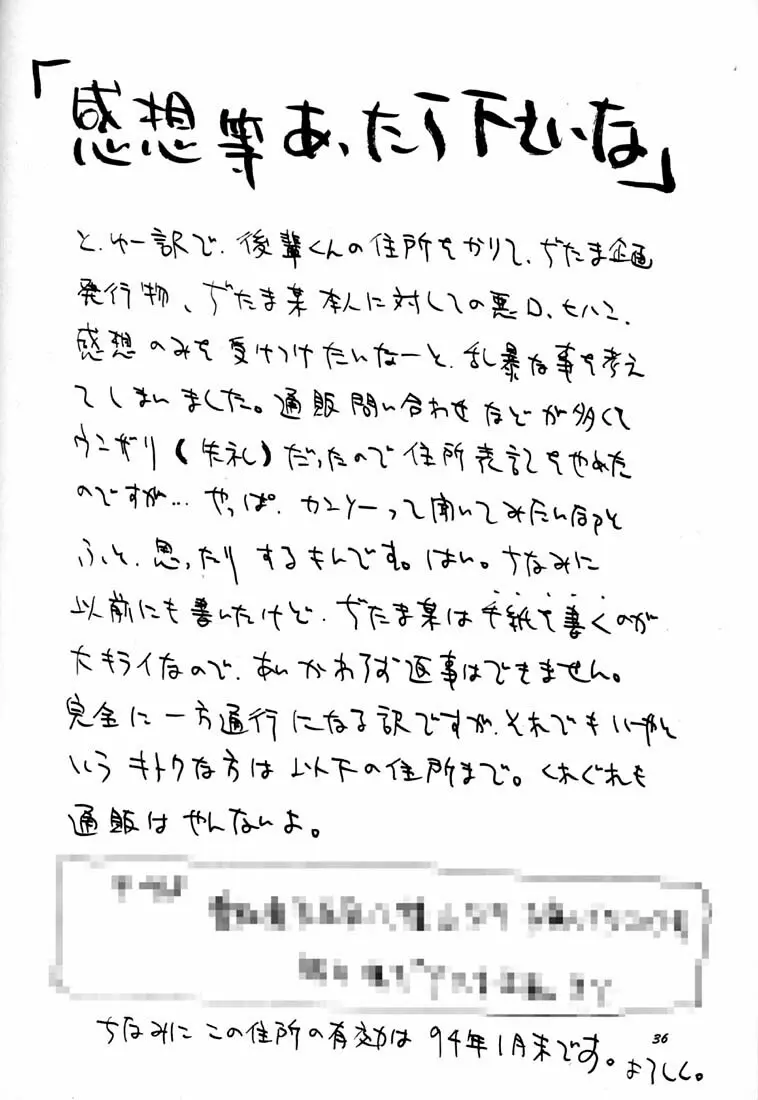 「感想等あったら下せいな」
と、ゆー訳で、後輩くんの住所をかりて、ぢたま企画
発行物、ぢたま某本人に対しての悪口、ヒハン、
感想のみを受けつけたいなーと、乱暴な事を考え
てしまいました。通販問い合わせなどが多くて
ウンザリ(失礼)だったので住所表記をやめた
のですが… やっぱ、カンソーって聞いてみたいなァと
ふと、思ったりするもんです。はい。ちなみに
以前にも書いたけど、ぢたま某は手紙を書くのが
大キライなので、あいかわらず返事はできません。
完全に一方通行になる訳ですが、それでもいーやと
いうキトクな方は以下の住所まで。くれぐれも
通販はやんないよ。
ちなみにこの住所の有効は94年1月末です。よろしく。
36